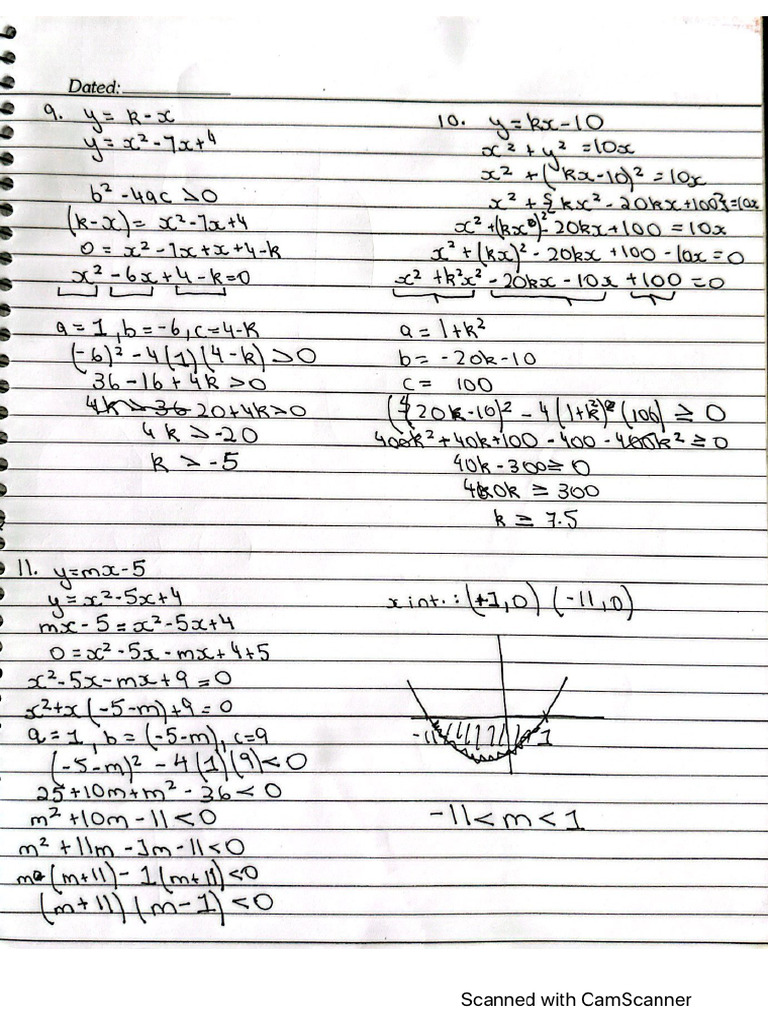 Dated:
9. y = k-x
y = x² - 7x+4
b² - 4ac > 0
(k-x) = x² - 7x+4
0 = x² - 7x + x + 4 - k
x² - 6x + 4 - k = 0
a = 1, b = -6, c = 4-k
(-6)² - 4(1)(4-k) > 0
36 - 16 + 4k > 0
4k > 36 20+4k > 0
4k > -20
k > -5
10. y = kx-10
x² + y² = 10x
x² + (kx-10)² = 10x
x² + { kx² - 20kx + 100} = 10x
x² + (kx)² - 20kx + 100 = 10x
x² + (kx)² - 20kx + 100 - 10x = 0
x² + k²x² - 20kx - 10x + 100 = 0
a = 1+k²
b = -20k-10
c = 100
(-20k-10)² - 4(1+k²)(100) ≥ 0
400k² + 40k+100 - 400 - 400k² ≥ 0
40k - 300 ≥ 0
40k ≥ 300
k ≥ 7.5
11. y=mx-5
y = x² - 5x+4
mx - 5 = x² - 5x+4
0 = x² - 5x - mx + 4+5
x² - 5x - mx + 9 = 0
x² + x(-5-m)+9 = 0
a = 1, b = (-5-m), c=9
(-5-m)² - 4(1)(9) < 0
25+10m+m² - 36 < 0
m² + 10m - 11 < 0
m² + 11m - 1m - 11 < 0
m (m+11) - 1(m+11) < 0
(m+11)(m-1) < 0
x int. : (+1,0) (-11,0)
-11 1
-11 < m < 1
Scanned with CamScanner